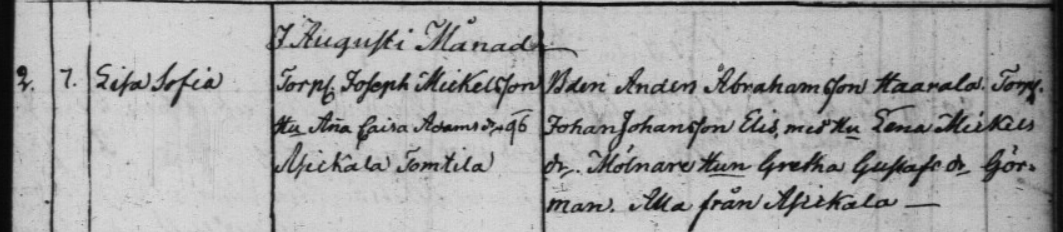 I Augusti Månad
2. 7. Lisa Sofia
Torp. Joseph Mickelsson
Hu Aña Caisa Adamsdr 96
Asickala Tomtila
Bden Anders Abrahamsson Haarala. Torp.
Johan Johansson Elis, med Hu Lena Mickels
dr. Mölnare Hun Gretha Gustafs dr Gör-
man. Alla från Asickala —